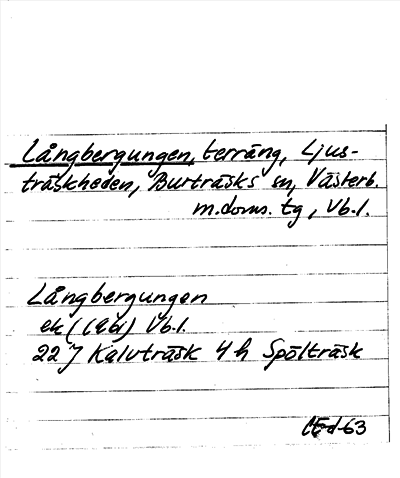 Långbergungen, terräng, Ljus-
träskheden, Burträsks sn, Västerb.
m.doms. tg, Vb.l.
Långbergungen
ek ( ) Vb.l.
22 J Kalvträsk 4 h Spölträsk
-63